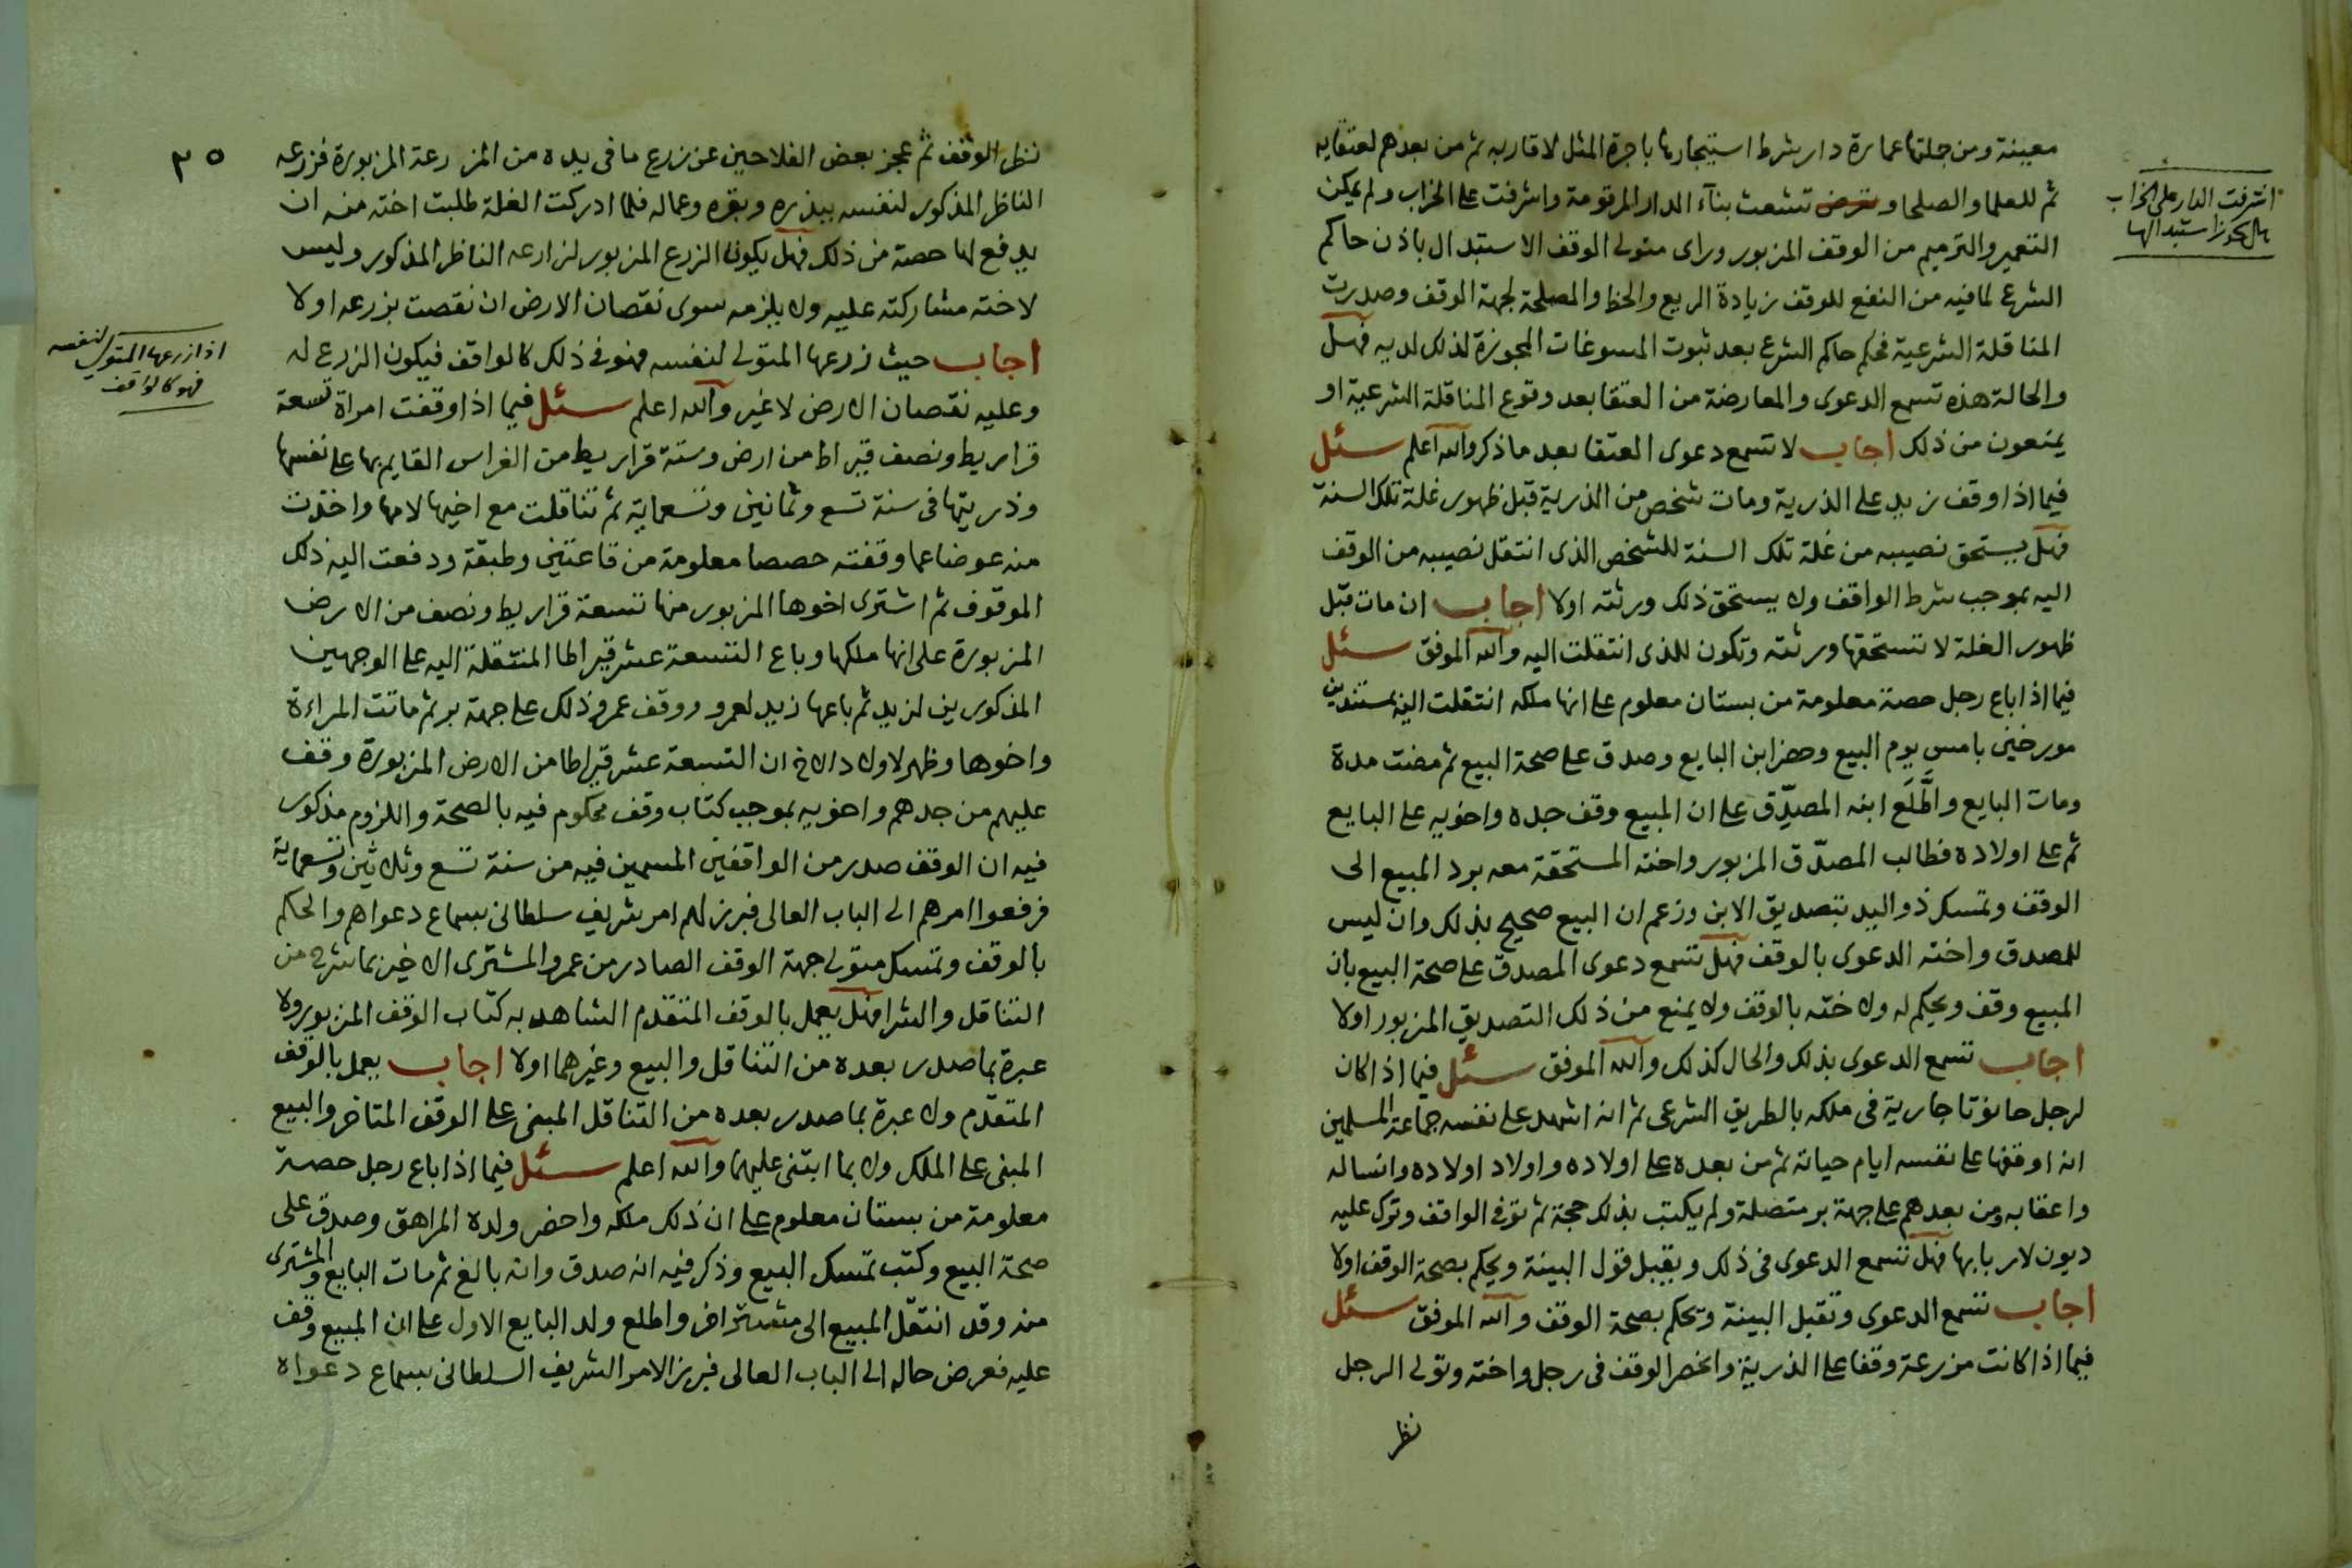 معينة ومن جلتها عمارة دار بشرط استيجارها باجرة المثل لاقاربه ثم من بعدهم لعتقايه
ثم للعلما والصلحا وتشعث بنآء الدار المرقومة واشرفت على الخراب ولم يمكن
التعمير والترميم من الوقف المزبور وراى متولى الوقف الاستبدال باذن حاكم
الشرع لما فيه من النفع للوقف بزيادة الريع والحظ والمصلحة لجهة الوقف وصدرت
المناقلة الشرعية فحكم حاكم الشرع بعد ثبوت المسوغات المجوزة لذلك لديه فهل
والحالة هذه تسمع الدعوى والمعارضة من العتقا بعد وقوع المناقلة الشرعية او
يمنعون من ذلك اجاب لا تسمع دعوى العتقا بعد ما ذكر والله اعلم سئل
فيما اذا وقف زيد على الذرية ومات شخص من الذرية قبل ظهور غلة تلك السنة
فهل يستحق نصيبه من غلة تلك السنة للشخص الذى انتقل نصيبه من الوقف
اليه بموجب شرط الواقف ولا يستحق ذلك ورثته اولا اجاب ان مات قبل
ظهور الغلة لا تستحقها ورثته وتكون للذى انتقلت اليه والله الموفق سئل
فيما اذا باع رجل حصة معلومة من بستان معلوم على انها ملكه انتقلت اليه بمستندين
مورخين بامس يوم البيع وحضر ابن البايع وصدق على صحة البيع ثم مضت مدة
ومات البايع واطَّلَع ابنه المصدِّق على ان المبيع وقف جده واخويه على البايع
ثم على اولاده فطالب المصدّق المزبور واخته المستحقة معه برد المبيع الى
الوقف وتمسك ذو اليد بتصديق الابن وزعم ان البيع صحيح بذلك وان ليس
للمصدق واخته الدعوى بالوقف فهل تسمع دعوى المصدق على صحة البيع بان
المبيع وقف ويحكم له ولاخته بالوقف ولا يمنع من ذلك التصديق المزبور اولا
اجاب تسمع الدعوى بذلك والحال كذلك والله الموفق سئل فيما اذا كان
لرجل حانوتا جارية فى ملكه بالطريق الشرعى ثم انه اشهد على نفسه جماعة المسلمين
انه اوقفها على نفسه ايام حياته ثم من بعده على اولاده واولاد اولاده وانساله
واعقابه ومن بعدهم على جهة بر متصلة ولم يكتب بذلك حجة ثم توفى الواقف وترك عليه
ديون لاربابها فهل تسمع الدعوى فى ذلك ويقبل قول البينة ويحكم بصحة الوقف اولا
اجاب تسمع الدعوى وتقبل البينة ويحكم بصحة الوقف والله الموفق سئل
فيما اذا كانت مزرعة وقفا على الذرية وانحصر الوقف فى رجل واخته وتولى الرجل
نظر
اشرفت الدار على الخراب
هل يجوز استبدالها
٢٥
نظر الوقف ثم عجز بعض الفلاحين عن زرع ما فى يده من المزرعة المزبورة فزرعه
الناظر المذكور لنفسه ببذره وبقره وعماله فلما ادركت الغلة طلبت اخته منه ان
يدفع لها حصة من ذلك فهل يكون الزرع المزبور لزارعه الناظر المذكور وليس
لاخته مشاركته عليه ولا يلزمه سوى نقصان الارض ان نقصت بزرعه اولا
اجاب حيث زرعها المتولى لنفسه فهو فى ذلك كالواقف فيكون الزرع له
وعليه نقصان الارض لا غير والله اعلم سئل فيما اذا وقفت امراة تسعة
قراريط ونصف قيراط من ارض وستة قراريط من الغراس القايم بها على نفسها
وذريتها فى سنة تسع وثمانين وتسعماية ثم تناقلت مع اخيها لامها واخذت
منه عوضا عما وقفته حصصا معلومة من قاعتين وطبقة ودفعت اليه ذلك
الموقوف ثم اشترى اخوها المزبور منها تسعة قراريط ونصف من الارض
المزبورة على انها ملكها وباع التسعة عشر قيراطا المنتقلة اليه على الوجهين
المذكورين لزيد ثم باعها زيد لعمرو ووقف عمرو ذلك على جهة بر ثم ماتت المراءة
واخوها وظهر لاولاد الاخ ان التسعة عشر قيراطا من الارض المزبورة وقف
عليهم من جدهم واخويه بموجب كتاب وقف محكوم فيه بالصحة واللزوم مذكور
فيه ان الوقف صدر من الواقفين المسمين فيه من سنة تسع وثلاثين وتسعماية
فرفعوا امرهم الى الباب العالى فبرز لهم امر شريف سلطانى بسماع دعواهم والحكم
بالوقف وتمسك متولى جهة الوقف الصادر من عمرو المشترى الاخير بما شرح من
التناقل والشرا فهل يعمل بالوقف المتقدم الشاهد به كتاب الوقف المزبور ولا
عبرة بما صدر بعده من التناقل والبيع وغيرهما اولا اجاب يعمل بالوقف
المتقدم ولا عبرة بما صدر بعده من التناقل المبنى على الوقف المتاخر والبيع
المبنى على الملك ولا بما ابتنى عليهما والله اعلم سئل فيما اذا باع رجل حصة
معلومة من بستان معلوم على ان ذلك ملكه واحضر ولده المراهق وصدق على
صحة البيع وكتب تمسك البيع وذكر فيه انه صدق وانه بالغ ثم مات البايع والمشترى
منه وقد انتقل المبيع الى مشتر اخر واطلع ولد البايع الاول على ان المبيع وقف
عليه فعرض حاله الى الباب العالى فبرز الامر الشريف السلطانى بسماع دعواه
اذا زرعها المتولى لنفسه
فهو كالواقف